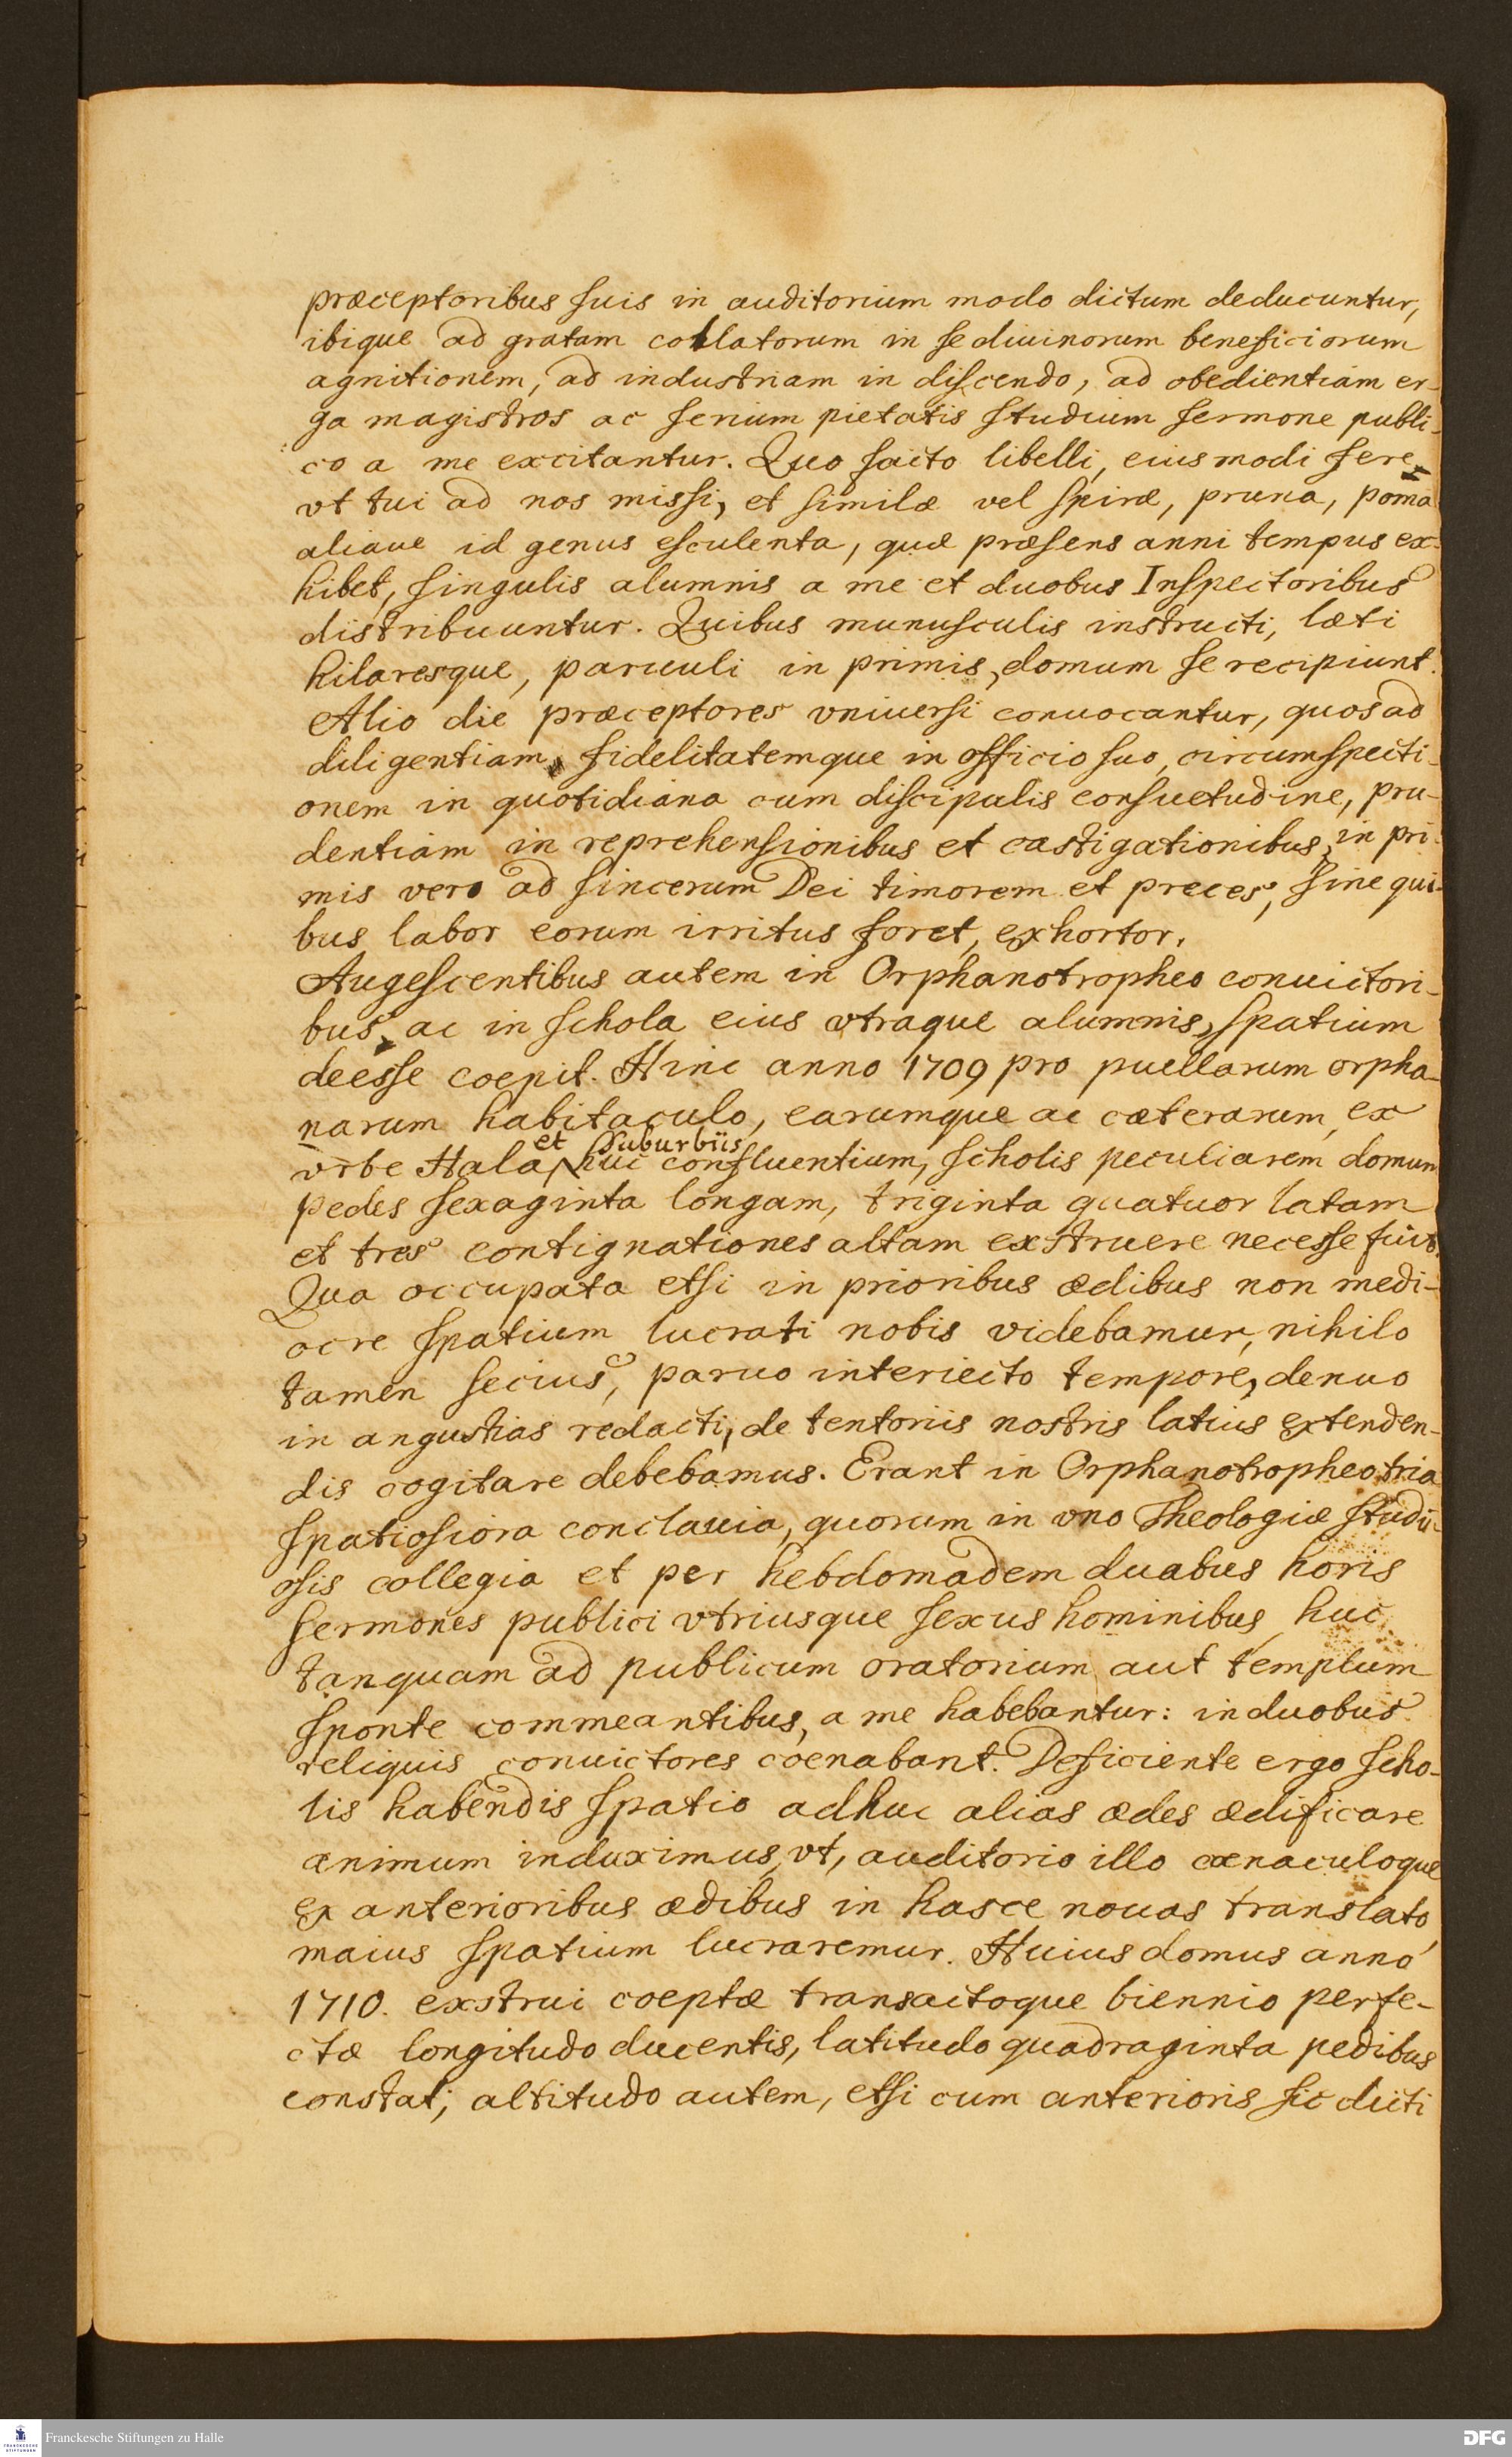 præceptoribus suis in auditorium modo dictum deducuntur,
ibique ad gratam collatorum in se diuinorum beneficiorum
agnitionem, ad industriam in discendo, ad obedientiam er-
ga magistros ac serium pietatis studium sermone publi-
co a me excitantur. Quo facto libelli, eiusmodi fere,
vt tui ad nos missi, et similæ vel spiræ, pruna, poma
aliaue id genus esculenta, quæ præsens anni tempus ex-
hibet, singulis alumnis a me et duobus Inspectoribus
distribuuntur. Quibus munusculis instructi, læti
hilaresque, paruuli in primis, domum se recipiunt.
Alio die præceptores vniuersi conuocantur, quos ad
diligentiam, fidelitatemque in officio suo, circumspecti-
onem in quotidiana cum discipulis consuetudine, pru-
dentiam in reprehensionibus et castigationibus, in pri-
mis vero ad sincerum Dei timorem et preces, sine qui-
bus labor eorum irritus foret, exhortor.
Augescentibus autem in Orphanotropheo conuictori-
bus, ac in schola eius vtraque alumnis, spatium
deesse coepit. Hinc anno 1709 pro puellarum orpha-
narum habitaculo, earumque ac cæterarum, ex
et Suburbiis
vrbe Hala huc confluentium, scholis peculiarem domum
pedes sexaginta longam, triginta quatuor latam
et tres contignationes altam exstruere necesse fuit.
Qua occupata etsi in prioribus ædibus non medi-
ocre spatium lucrati nobis videbamur, nihilo
tamen secius, paruo interiecto tempore, denuo
in angustias redacti, de tentoriis nostris latius extenden-
dis cogitare debebamus. Erant in Orphanotropheo tria
spatiosiora conclauia, quorum in vno Theologiæ studi-
osis collegia et per hebdomadem duabus horis
sermones publici vtriusque sexus hominibus, huc
tanquam ad publicum oratorium aut templum
sponte commeantibus, a me habebantur: in duobus
reliquis conuictores coenabant. Deficiente ergo scho-
lis habendis spatio adhuc alias ædes ædificare
animum induximus, vt, auditorio illo cænaculoque
ex anterioribus ædibus in hasce nouas translato,
maius spatium lucraremur. Huius domus anno
1710. exstrui coeptæ transactoque biennio perfe-
ctæ longitudo ducentis, latitudo quadraginta pedibus
constat; altitudo autem, etsi cum anterioris sic dicti
Franckesche Stiftungen zu Halle
DFG